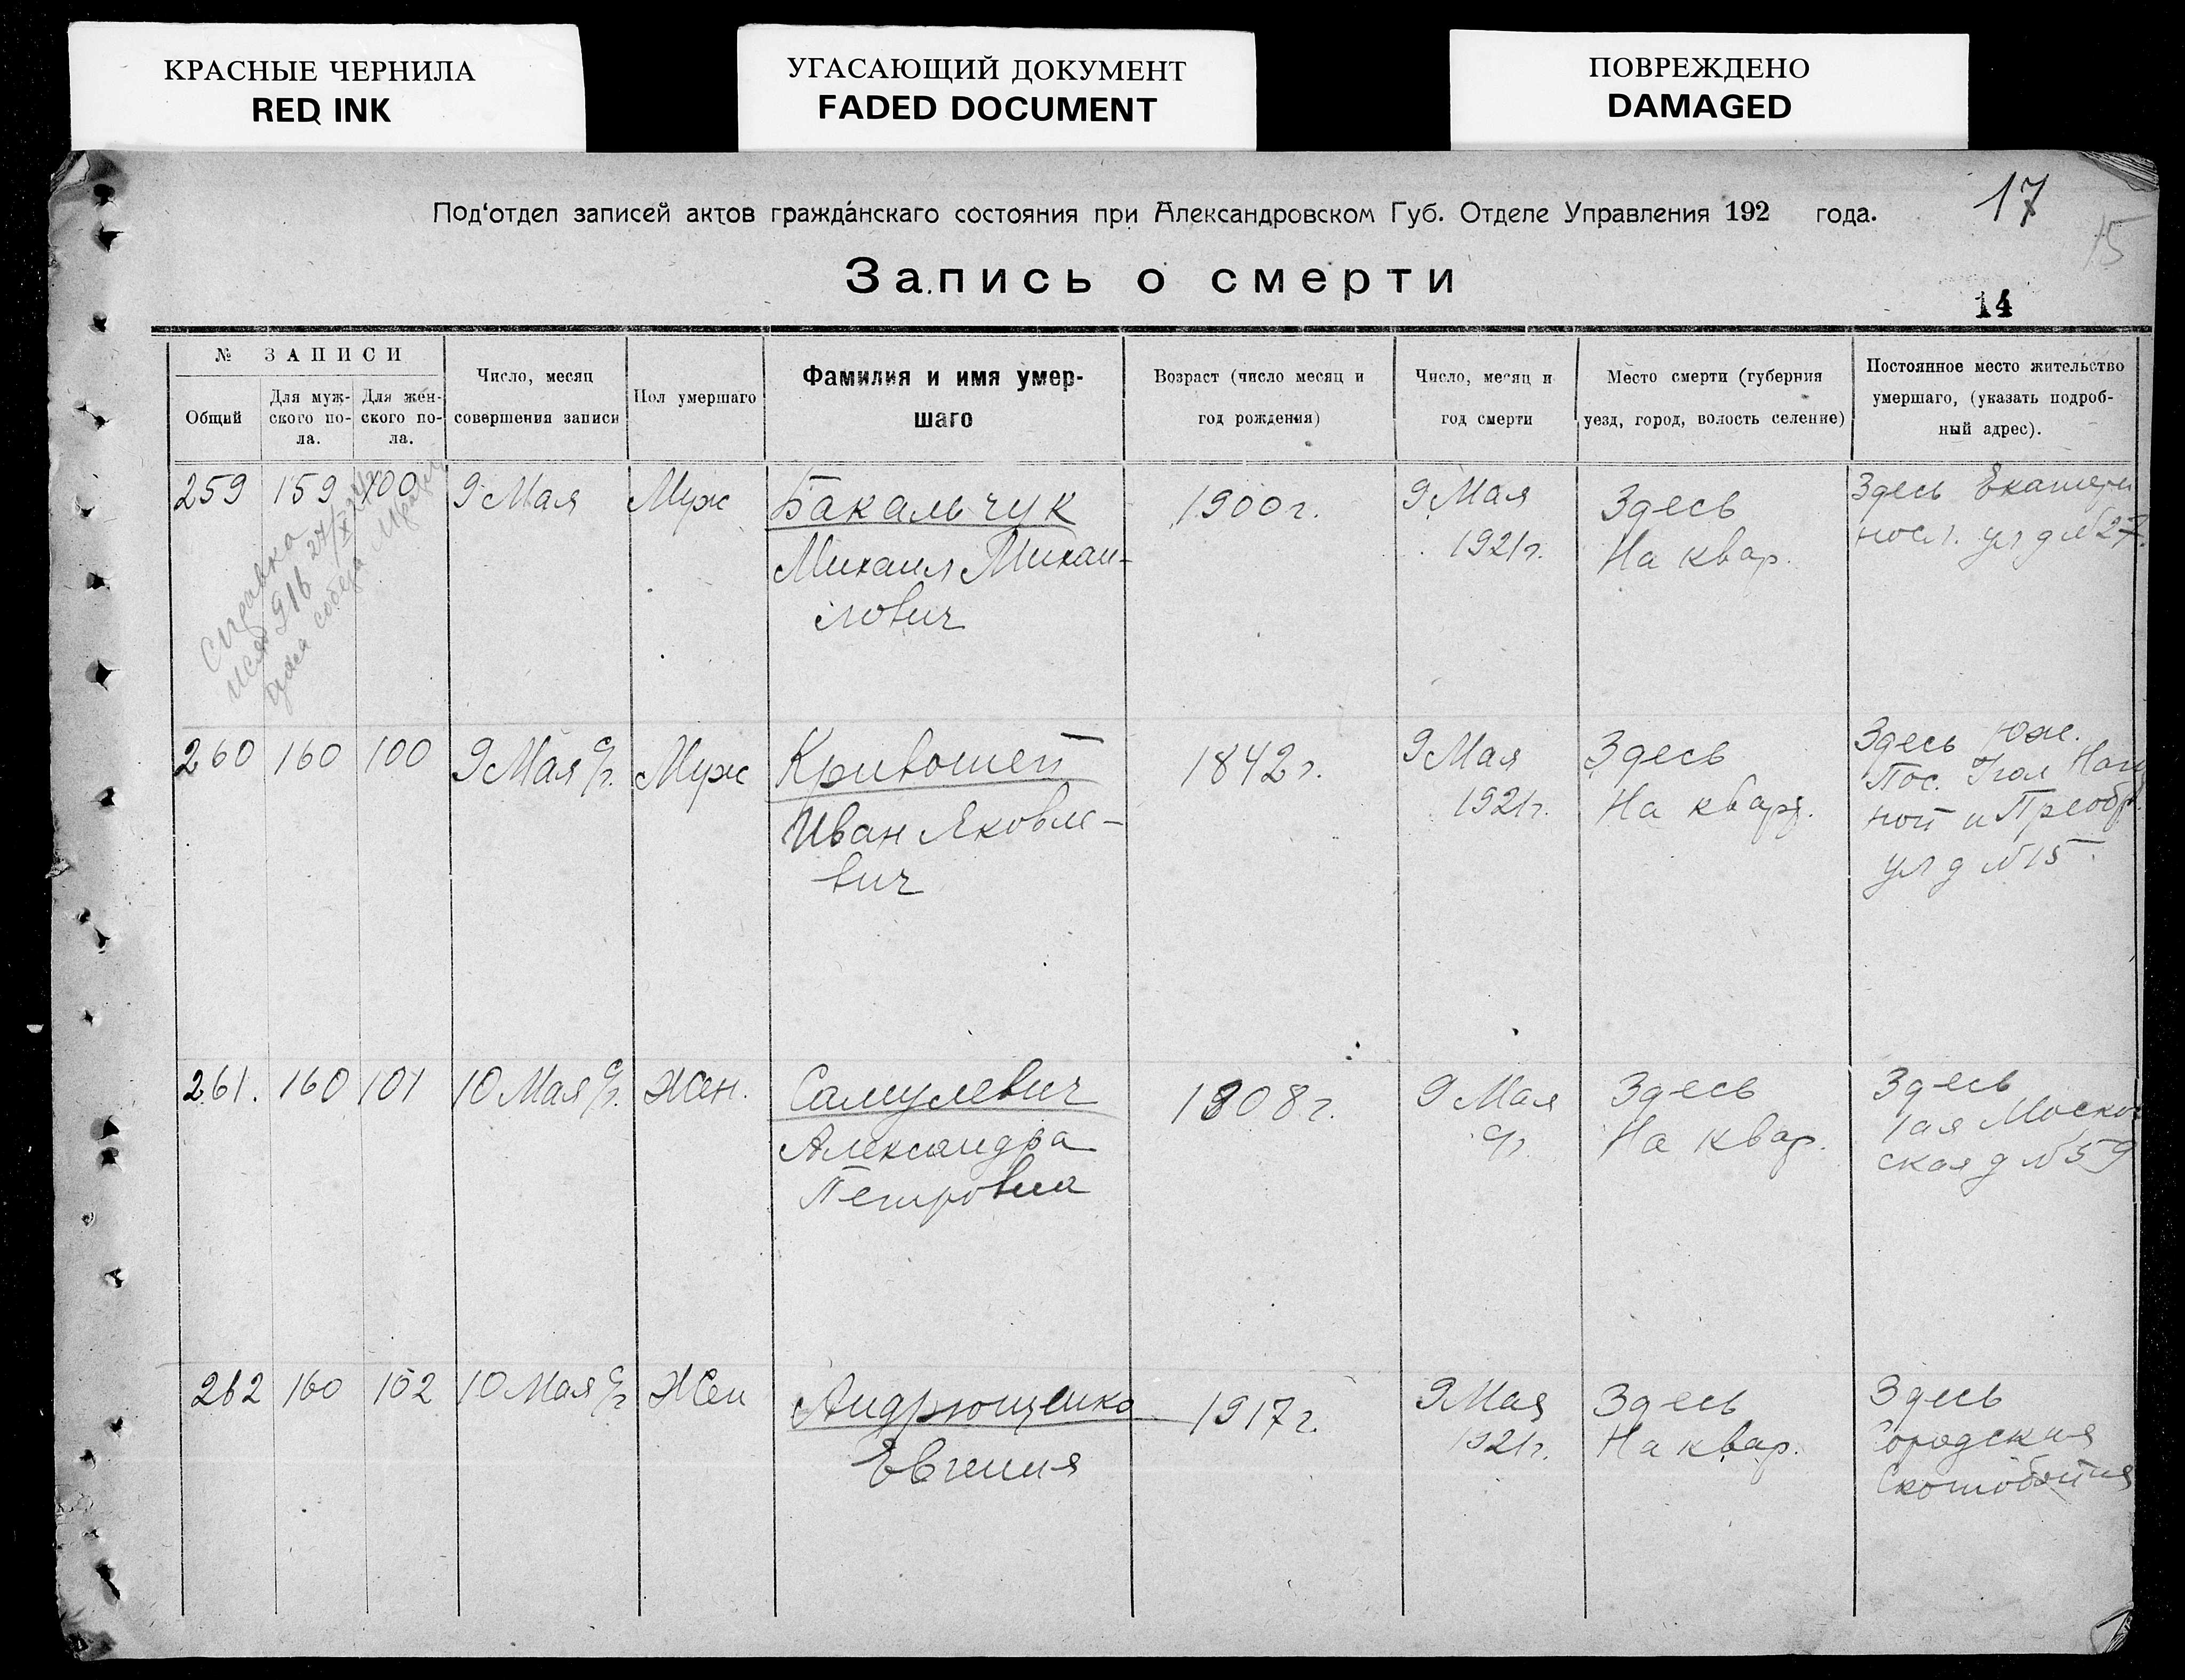 КРАСНЫЕ ЧЕРНИЛА
RED INK
УГАСАЮЩИЙ ДОКУМЕНТ
FADED DOCUMENT
ПОВРЕЖДЕНО
DAMAGED
17
15
Под'отдел записей актов гражданскаго состояния при Александровском Губ. Отделе Управления 192 года.
Запись о смерти
14
№ ЗАПИСИ
Общий
Для муж-
ского по-
ла.
Для жен-
ского по-
ла.
Число, месяц
совершения записи
Пол умершаго
Фамилия и имя умер-
шаго
Возраст (число месяц и
год рождения)
Число, месяц и
год смерти
Место смерти (губерния
уезд, город, волость селение)
Постоянное место жительство
умершаго, (указать подроб-
ный адрес).
259 159 100 9 Мая Муж
Бакальчук
Михаил Михаи-
лович
1900 г.
9 Мая
1921 г.
Здесь
На квар.
Здесь Екатери
посл. ул д №27.
Справка
916
260 160 100 9 Мая с/г. Муж
Кривошей
Иван Яковле-
вич
1842 г.
9 Мая
1921 г.
Здесь
На кварт.
Здесь Юж.
Пос. Угол Наг
ной и Преобр.
ул д №15.
261. 160 101 10 Мая с/г. Жен.
Самулевич
Александра
Петровна
1908 г.
9 Мая
с/г.
Здесь
На квар.
Здесь
1ая Москов
ская д №59
262 160 102 10 Мая с/г Жен
Андрющенко
Евгения
1917 г.
9 Мая
1921 г.
Здесь
На квар.
Здесь
Городская
Скотобойня